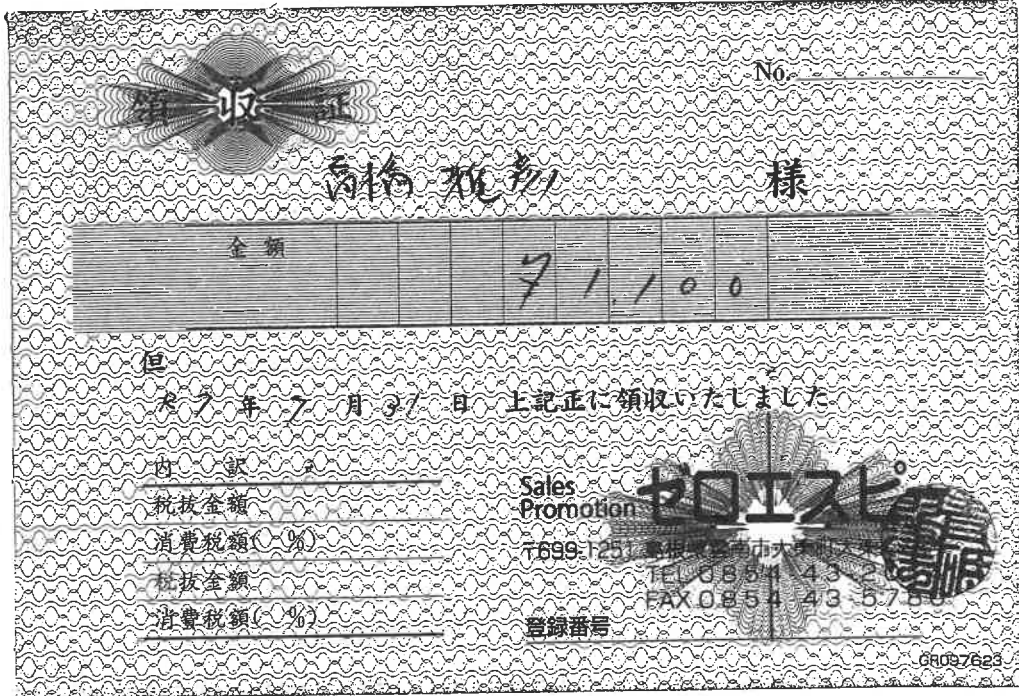 領収証
No.
高橋 雅彦 様
金額 ¥1,100
但
R7年7月31日 上記正に領収いたしました
内訳
税抜金額
消費税額( %)
税抜金額
消費税額( %)
Sales Promotion ゼロエスピ
〒699-1251 島根県雲南市大東町大東
TEL 0854 43
FAX 0854 43 578
登録番号
GR097623